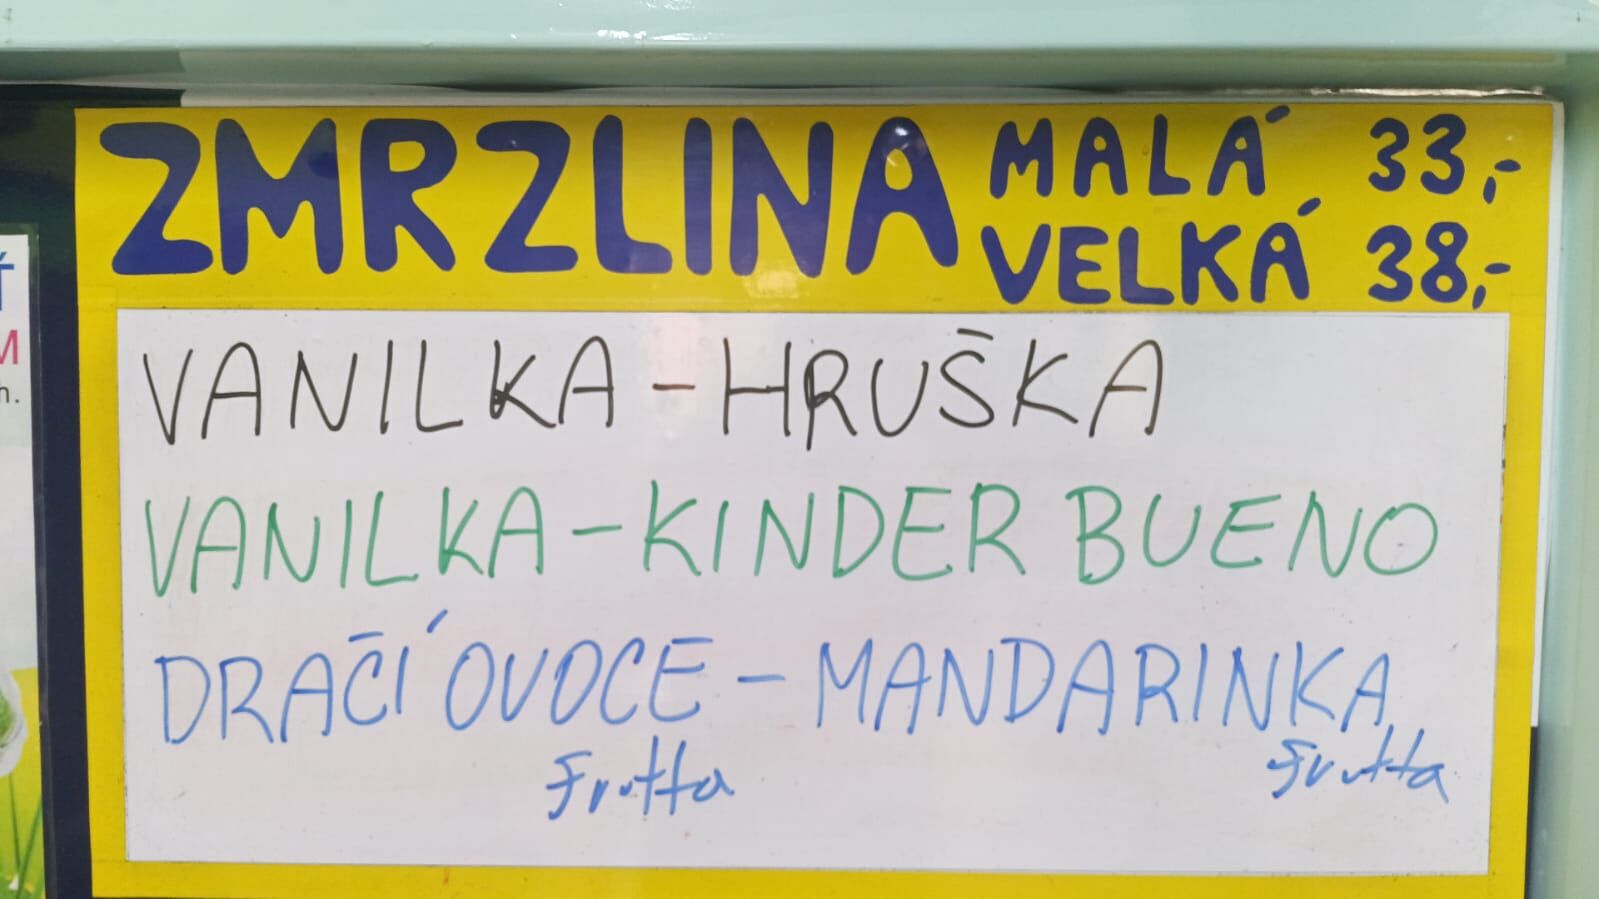 ZMRZLINA
MALÁ 33,-
VELKÁ 38,-
VANILKA-HRUŠKA
VANILKA-KINDER BUENO
DRAČÍ OVOCE - MANDARINKA
Frutta Frutta
M
h.